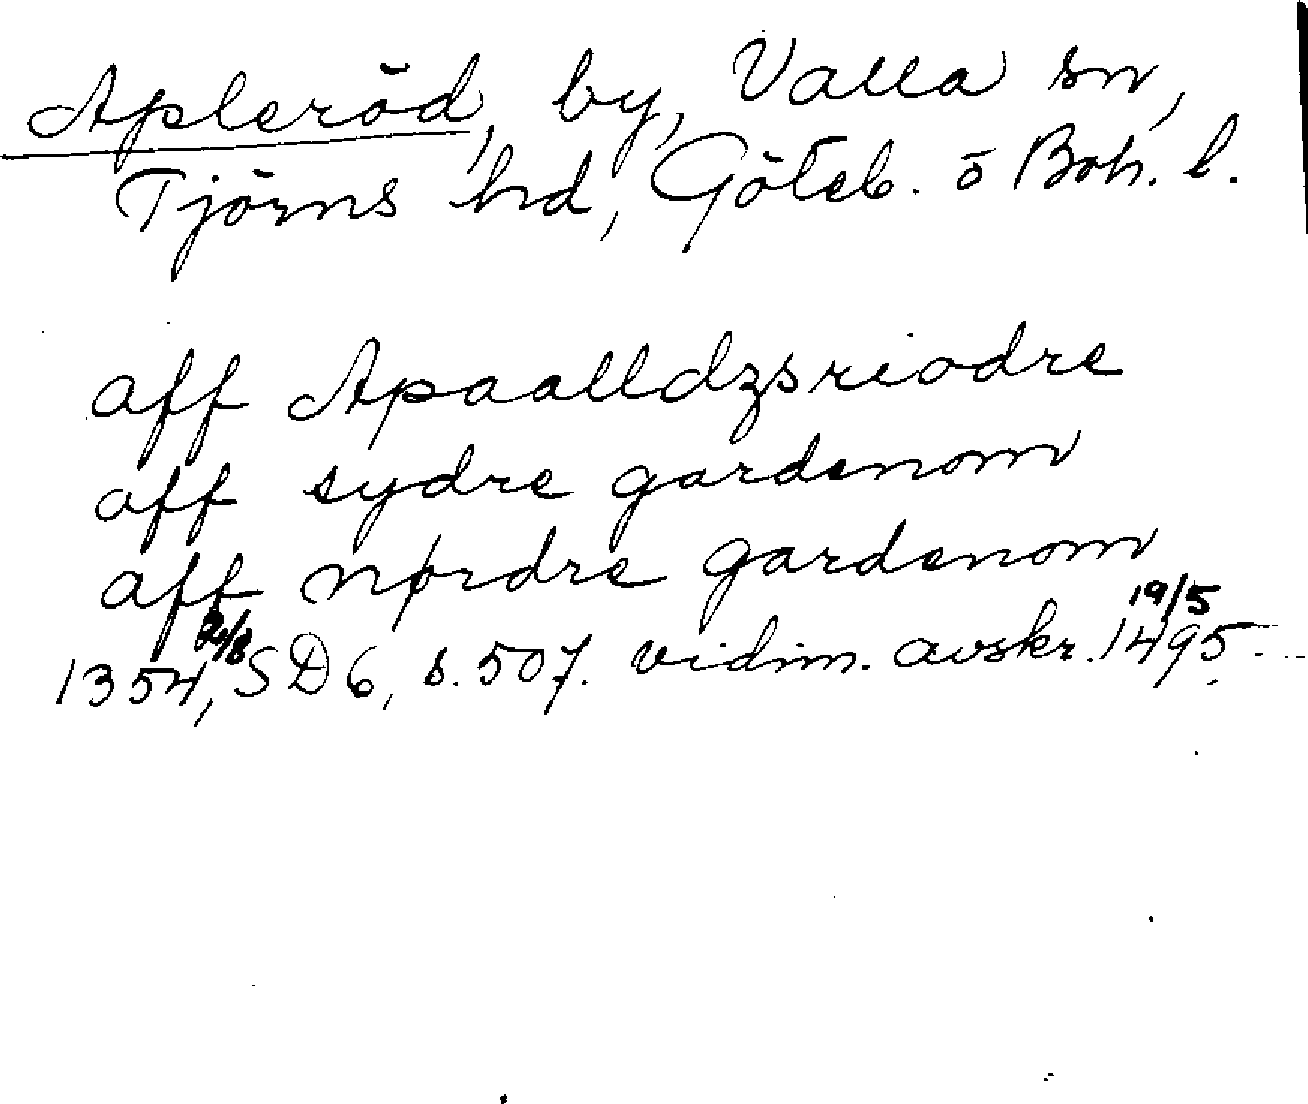 Apleröd, by, Valla sn,
Tjörns hd, Göteb. o Boh. l.
aff Apaalldzsriodre
aff sydre gardenom
aff nørdre gardenom
1354 2/8, SD6, s. 507. vidim. avskr. 1495 19/5.